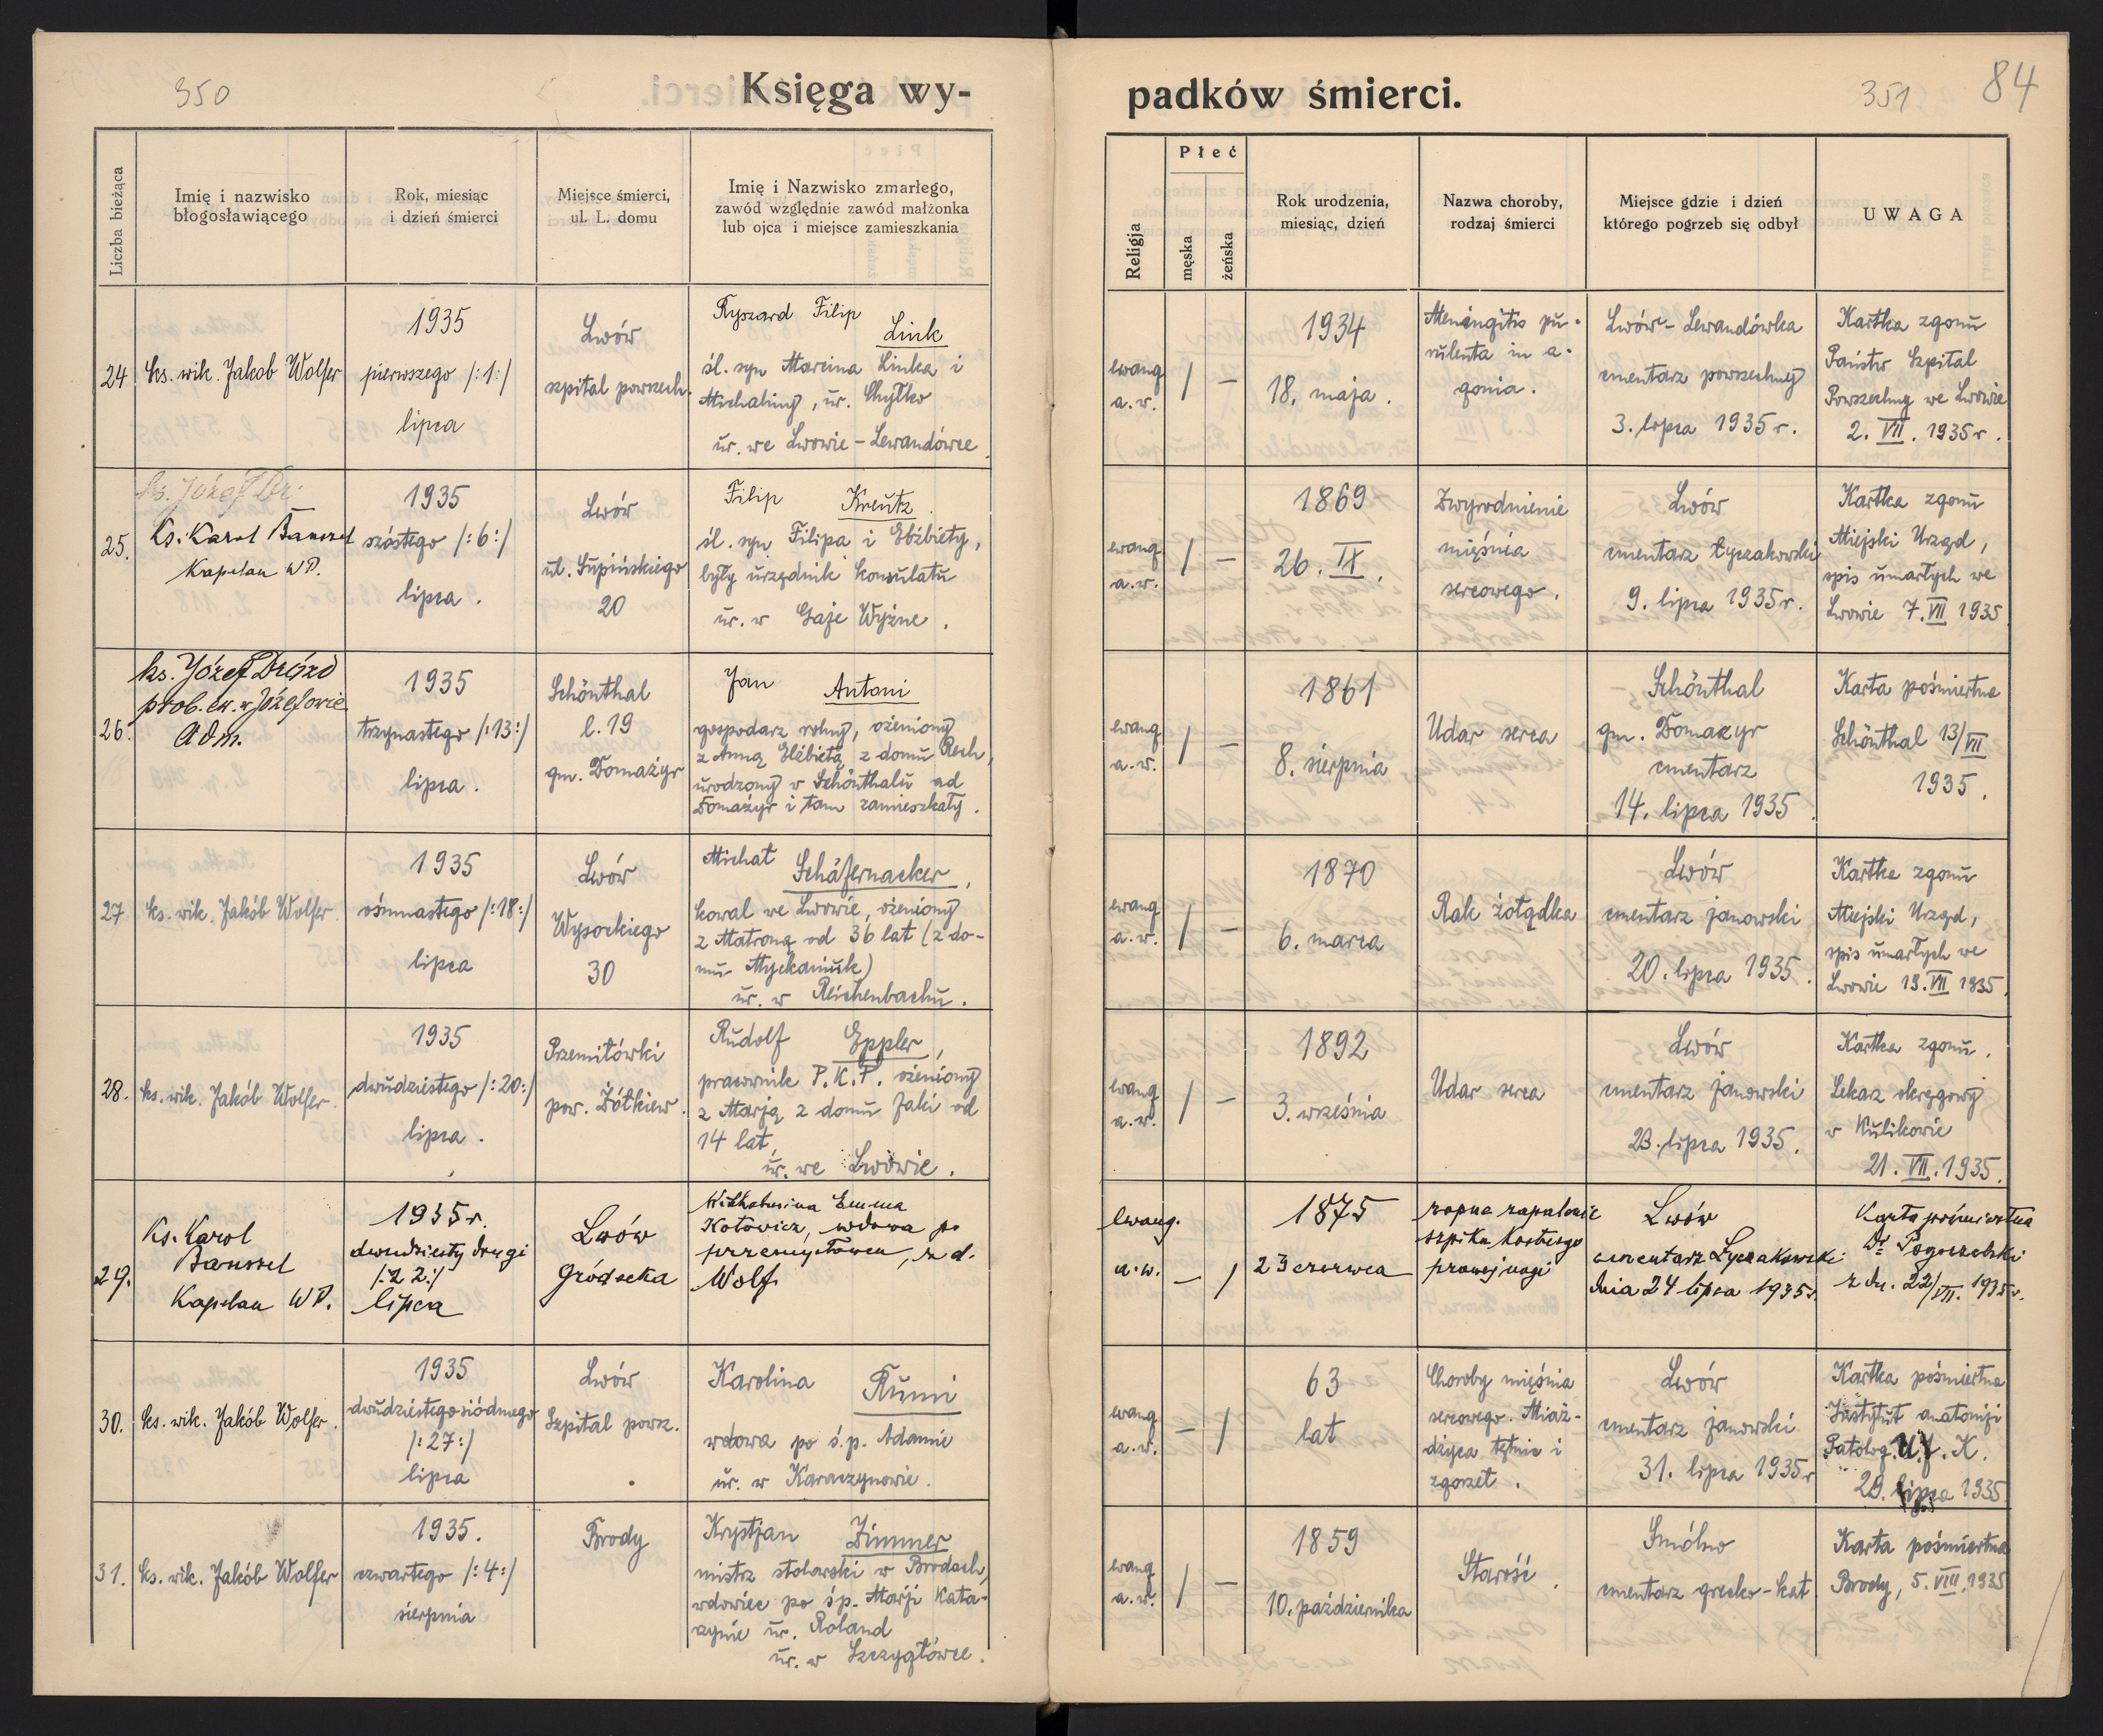 350
Księga wy-
padków śmierci.
351
84
Liczba bieżąca
Imię i nazwisko
błogosławiącego
Rok, miesiąc
i dzień śmierci
Miejsce śmierci,
ul. L. domu
Imię i Nazwisko zmarłego,
zawód względnie zawód małżonka
lub ojca i miejsce zamieszkania
Religja
Płeć
męska
żeńska
Rok urodzenia,
miesiąc, dzień
Nazwa choroby,
rodzaj śmierci
Miejsce gdzie i dzień
którego pogrzeb się odbył
UWAGA
24
ks. wik. Jakob Wolfer
1935
pierwszego /:1:/
lipca
Lwów
szpital powszech.
Ryszard Filip
Link
śl. syn Marcina Linka i
Michaliny, ur. Chyłko
ur. we Lwowie - Lewandówce
ewang
a.w.
/
–
1934
18. maja.
Meningitis pu-
rulenta in a-
gonia.
Lwów - Lewandówka
cmentarz powszechny
3. lipca 1935 r.
Kartka zgonu
Państw Szpital
Powszechny we Lwowie
2. VII. 1935 r.
25.
ks. Józef Dr.
Ks. Karol Banszel
Kapelan WP.
1935
szóstego /:6:/
lipca.
Lwów
ul. Supińskiego
20
Filip Kreutz
śl. syn Filipa i Elżbiety,
były urzędnik konsulatu
ur. w Gaje Wyżne.
ewang.
a.w.
/
–
1869
26. IX.
Zwyrodnienie
mięśnia
sercowego.
Lwów
cmentarz Łyczakowski
9. lipca 1935 r.
Kartka zgonu
Miejski Urząd,
spis umarłych we
Lwowie 7. VII 1935
26.
ks. Józef Drózd
prob. ew. w Józefowie
Adm.
1935
trzynastego /:13:/
lipca.
Schönthal
l. 19
gm. Domażyr
Jan Antoni
gospodarz rolny, ożeniony
z Anną Elżbietą z domu Rech,
urodzony w Schönthalu ad
Domażyr i tam zamieszkały.
ewang
a.w.
/
–
1861
8. sierpnia
Udar serca
Schönthal
gm. Domazyr
cmentarz
14. lipca 1935.
Karta pośmiertna
Schönthal 13/VII
1935.
27
ks. wik. Jakób Wolfer.
1935
ośmnastego /:18:/
lipca
Lwów
Wysockiego
30
Michał Schäfernacker,
kowal we Lwowie, ożeniony
z Matroną od 36 lat (z do-
mu Myckaniuk)
ur. w Reichenbachu.
ewang
a.w.
/
–
1870
6. marca
Rak żołądka
Lwów
cmentarz janowski
20. lipca 1935.
Kartka zgonu
Miejski Urząd,
spis umarłych we
Lwowie 19. VII 1935.
28.
ks. wik. Jakób Wolfer.
1935
dwudziestego /:20:/
lipca.
Przemiłówki
pow. Żółkiew.
Rudolf Eppler,
pracownik P.K.P. ożeniony
z Marją z domu Jaki od
14 lat,
ur. we Lwowie.
ewang
a.w.
/
–
1892
3. września
Udar serca
Lwów
cmentarz janowski
23. lipca 1935.
Kartka zgonu.
Lekarz okręgowy
w Kulikowie
21. VII. 1935.
29.
Ks. Karol
Banszel
Kapelan WP.
1935 r.
dwudziesty drugi
/:22:/
lipca
Lwów
Gródecka
Wilhelmina Emma
Kotowicz, wdowa po
przemysłowcu, z d.
Wolf
Ewang.
a.w.
–
/
1875
23 czerwca
ropne zapalenie
szpiku kostnego
prawej nogi
Lwów
cmentarz Łyczakowski
dnia 24 lipca 1935 r.
Karta pośmiertna
Dr Pogorzelski
z dn. 22/VII. 1935 r.
30.
ks. wik. Jakób Wolfer.
1935
dwudziestego siódmego
/:27:/
lipca
Lwów
Szpital powsz.
Karolina Rumi
wdowa po ś.p. Adamie
ur. w Karaczynowie.
ewang
a.w.
–
/
63
lat
Choroby mięśnia
sercowego. Miaż-
dżyca tętnic i
zgorzel.
Lwów
cmentarz janowski
31. lipca 1935 r
Kartka pośmiertna
Instytut anatomji
Patolog. U.J.K.
29. lipca 1935.
31.
ks. wik. Jakób Wolfer
1935.
czwartego /:4:/
sierpnia
Brody
Krystjan Zimmer
mistrz stolarski w Brodach,
wdowiec po ś.p. Marji Kata-
rzynie ur. Roland
ur. w Szczygłówce.
ewang
a.w.
/
–
1859
10. października
Starość.
Smólno
cmentarz grecko-kat.
Karta pośmiertna
Brody, 5. VIII. 1935